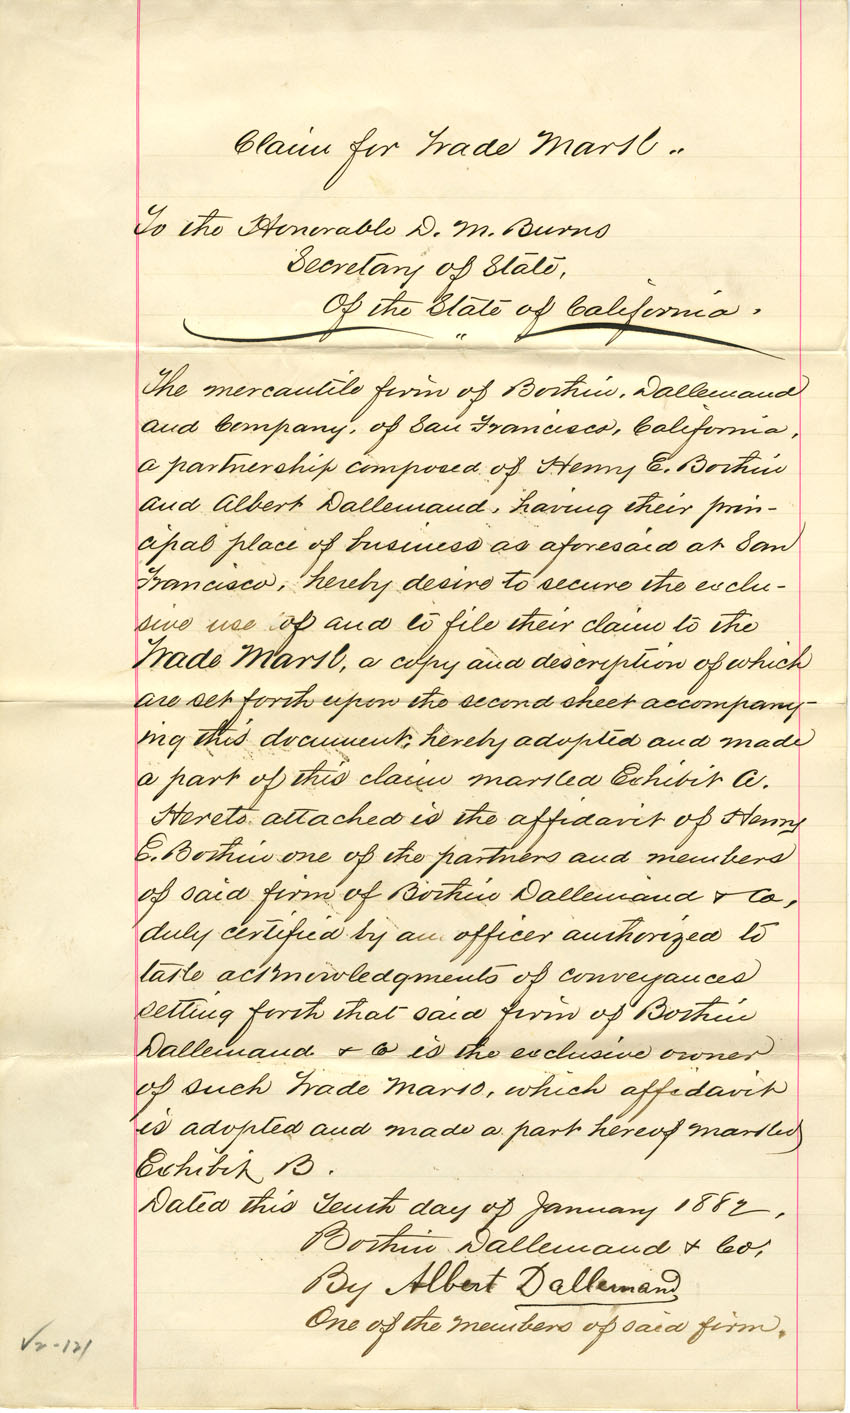 Claim for Trade Mark "
To the Honorable D. M. Burns
Secretary of State,
Of the State of California.
"
The mercantile firm of Bothin, Dallemand
and Company, of San Francisco, California,
a partnership composed of Henry E. Bothin
and Albert Dallemand, having their prin-
cipal place of business as aforesaid at San
Francisco, hereby desire to secure the exclu-
sive use of and to file their claim to the
Trade Mark, a copy and description of which
are set forth upon the second sheet accompany-
ing this document, hereby adopted and made
a part of this claim marked Exhibit A.
Hereto attached is the affidavit of Henry
E. Bothin one of the partners and members
of said firm of Bothin Dallemand & Co,
duly certified by an officer authorized to
take acknowledgments of conveyances
setting forth that said firm of Bothin
Dallemand & Co is the exclusive owner
of such Trade Mark, which affidavit
is adopted and made a part hereof marked
Exhibit B.
Dated this Tenth day of January 1882,
Bothin Dallemand & Co,
By Albert Dallemand
One of the members of said firm.
√2-121